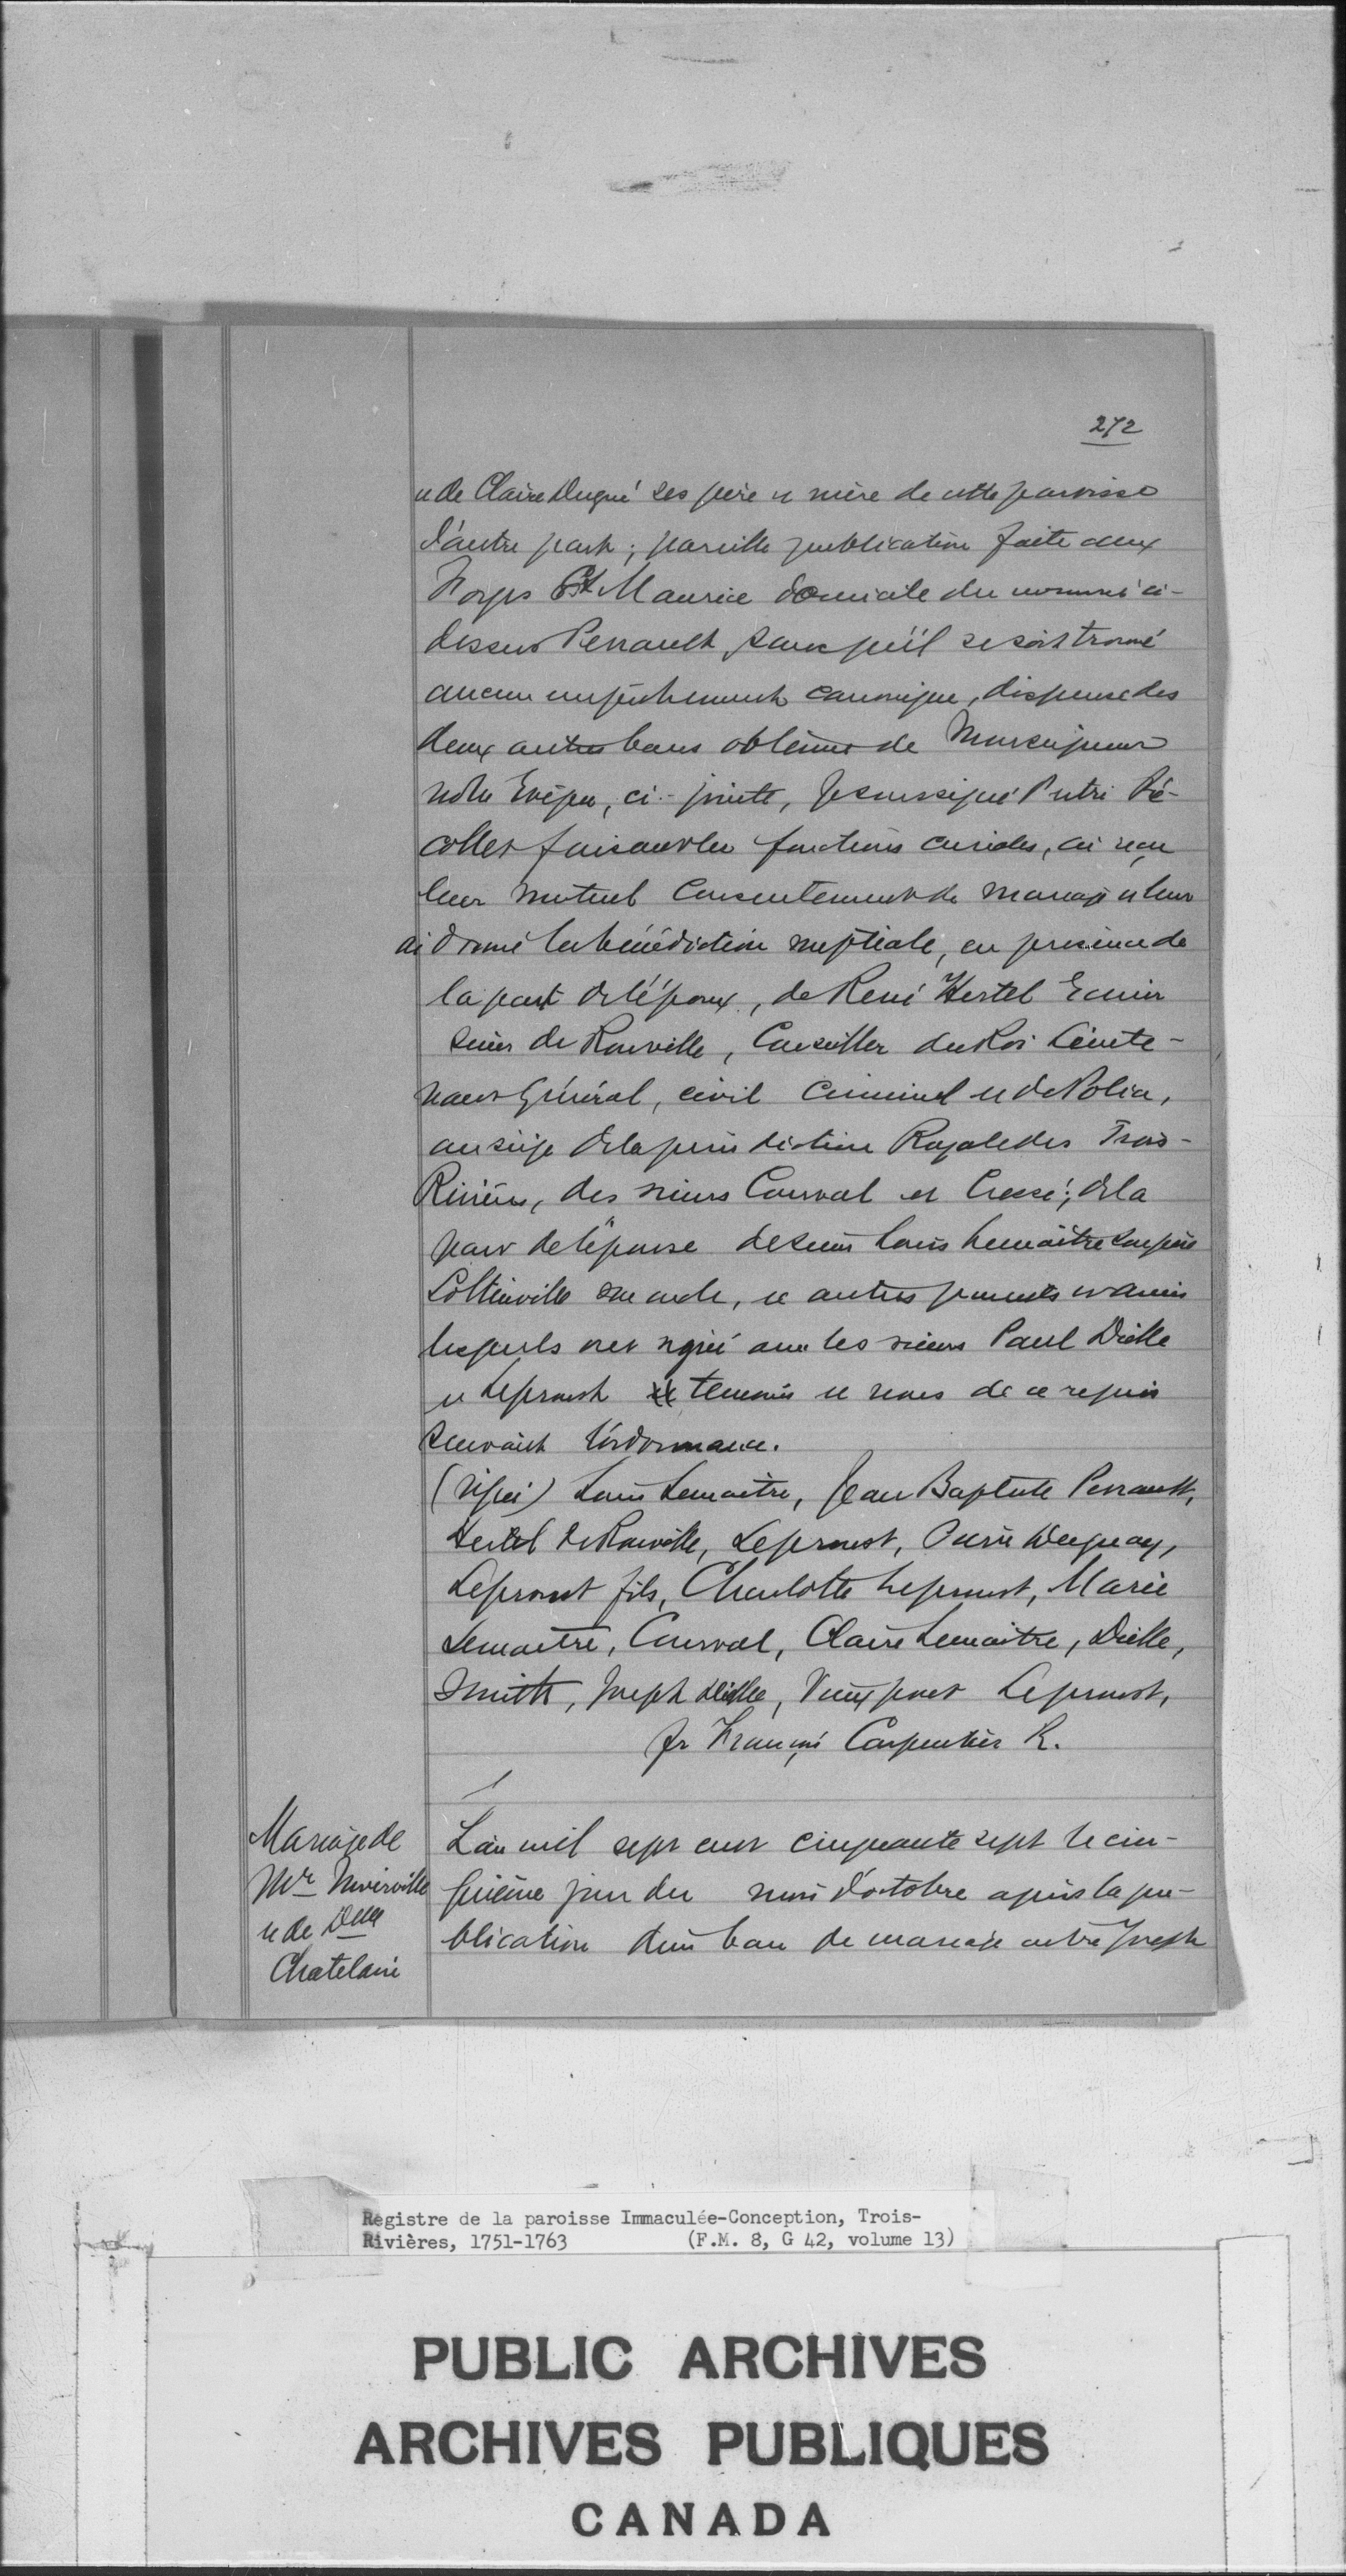 272
et de Claire Dugué ses père et mère de cette paroisse
d'autre part ; pareille publication faite aux
Forges St Maurice domicile du nommé ci-
dessus Perrault, sans qu'il se soit trouvé
aucun empêchement canonique, dispense des
deux autres bans obtenue de Monseigneur
notre Evêque, ci-jointe, Je soussigné Prêtre Ré-
collet faisant les fonctions curiales, ai reçu
leur mutuel consentement de mariage et leur
ai donné la bénédiction nuptiale, en présence de
la part de l'époux, de René Hertel Ecuier
sieur de Rouville, Conseiller du Roi Lieute-
nant Général, civil criminel et de Police,
au siège de la juridiction Royale des Trois-
Rivières, des sieurs Courval et Cressé ; de la
part de l'épouse de sieur Louis Lemaitre son père
Lottinville son oncle, et autres parents et amis
lesquels ont signé avec les sieurs Paul Dielle
et Leproust témoins et nous de ce requis
suivant l'ordonnance.
(signé) Louis Lemaitre, Jean Baptiste Perrault,
Hertel de Rouville, Leproust, Duguay,
Leproust fils, Charlotte Leproust, Marie
Lemaitre, Courval, Claire Lemaitre, Dielle,
Smith, Joseph Dielle, Leproust,
fr François Carpentier R.
Mariage de
Mr Niverville
et de Delle
Chatelain
L'an mil sept cent cinquante sept le cin-
quième jour du mois d'octobre après la pu-
blication d'un ban de mariage entre Joseph
Registre de la paroisse Immaculée-Conception, Trois-
Rivières, 1751-1763 (F.M. 8, G 42, volume 13)
PUBLIC ARCHIVES
ARCHIVES PUBLIQUES
CANADA